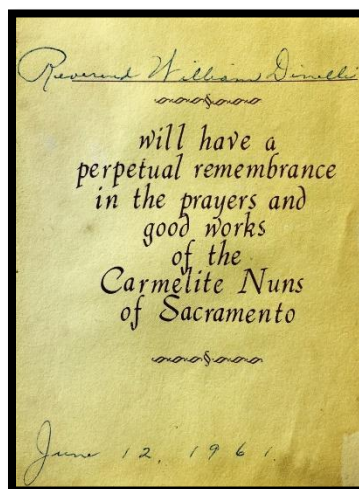 Reverend William Dinelli
will have a
perpetual remembrance
in the prayers and
good works
of the
Carmelite Nuns
of Sacramento
June 12, 1961.